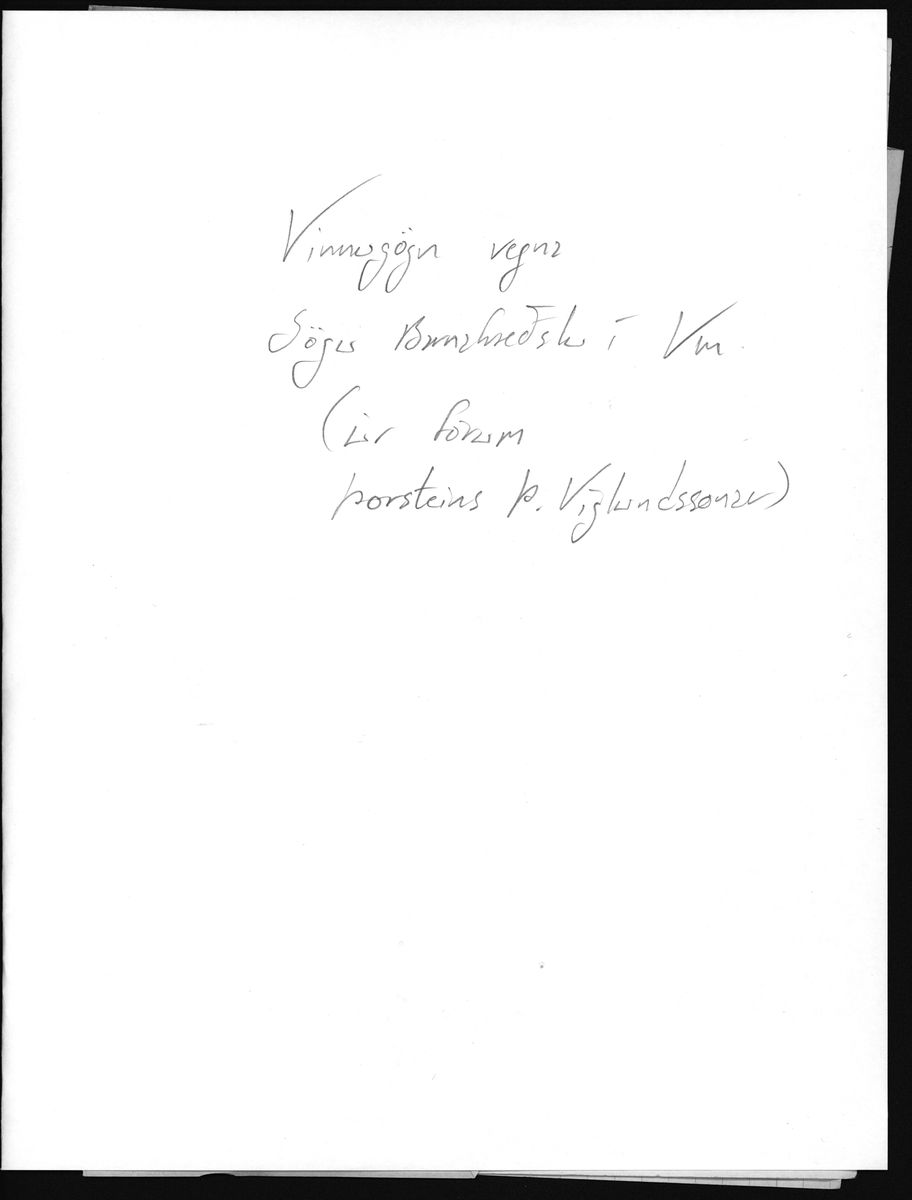 Vinnugögn vegna
Sögu Barnafræðslu í Vm.
(úr fórum
Þorsteins Þ. Víglundssonar)